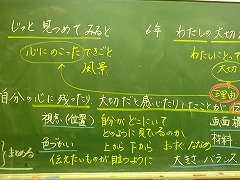 じっと見つめてみると
6年 わたしの大切
心にのこったできごと
わたしにとって
大切
風景
理由
自分の心に残ったり 大切だと感じたりしたことが
視点(位置) 自分がどこにいて
どのように見ているのか
画面構
色づかい 上から 下から
材料
まとめる
伝えたいものが目立つように
大きさ・バランス